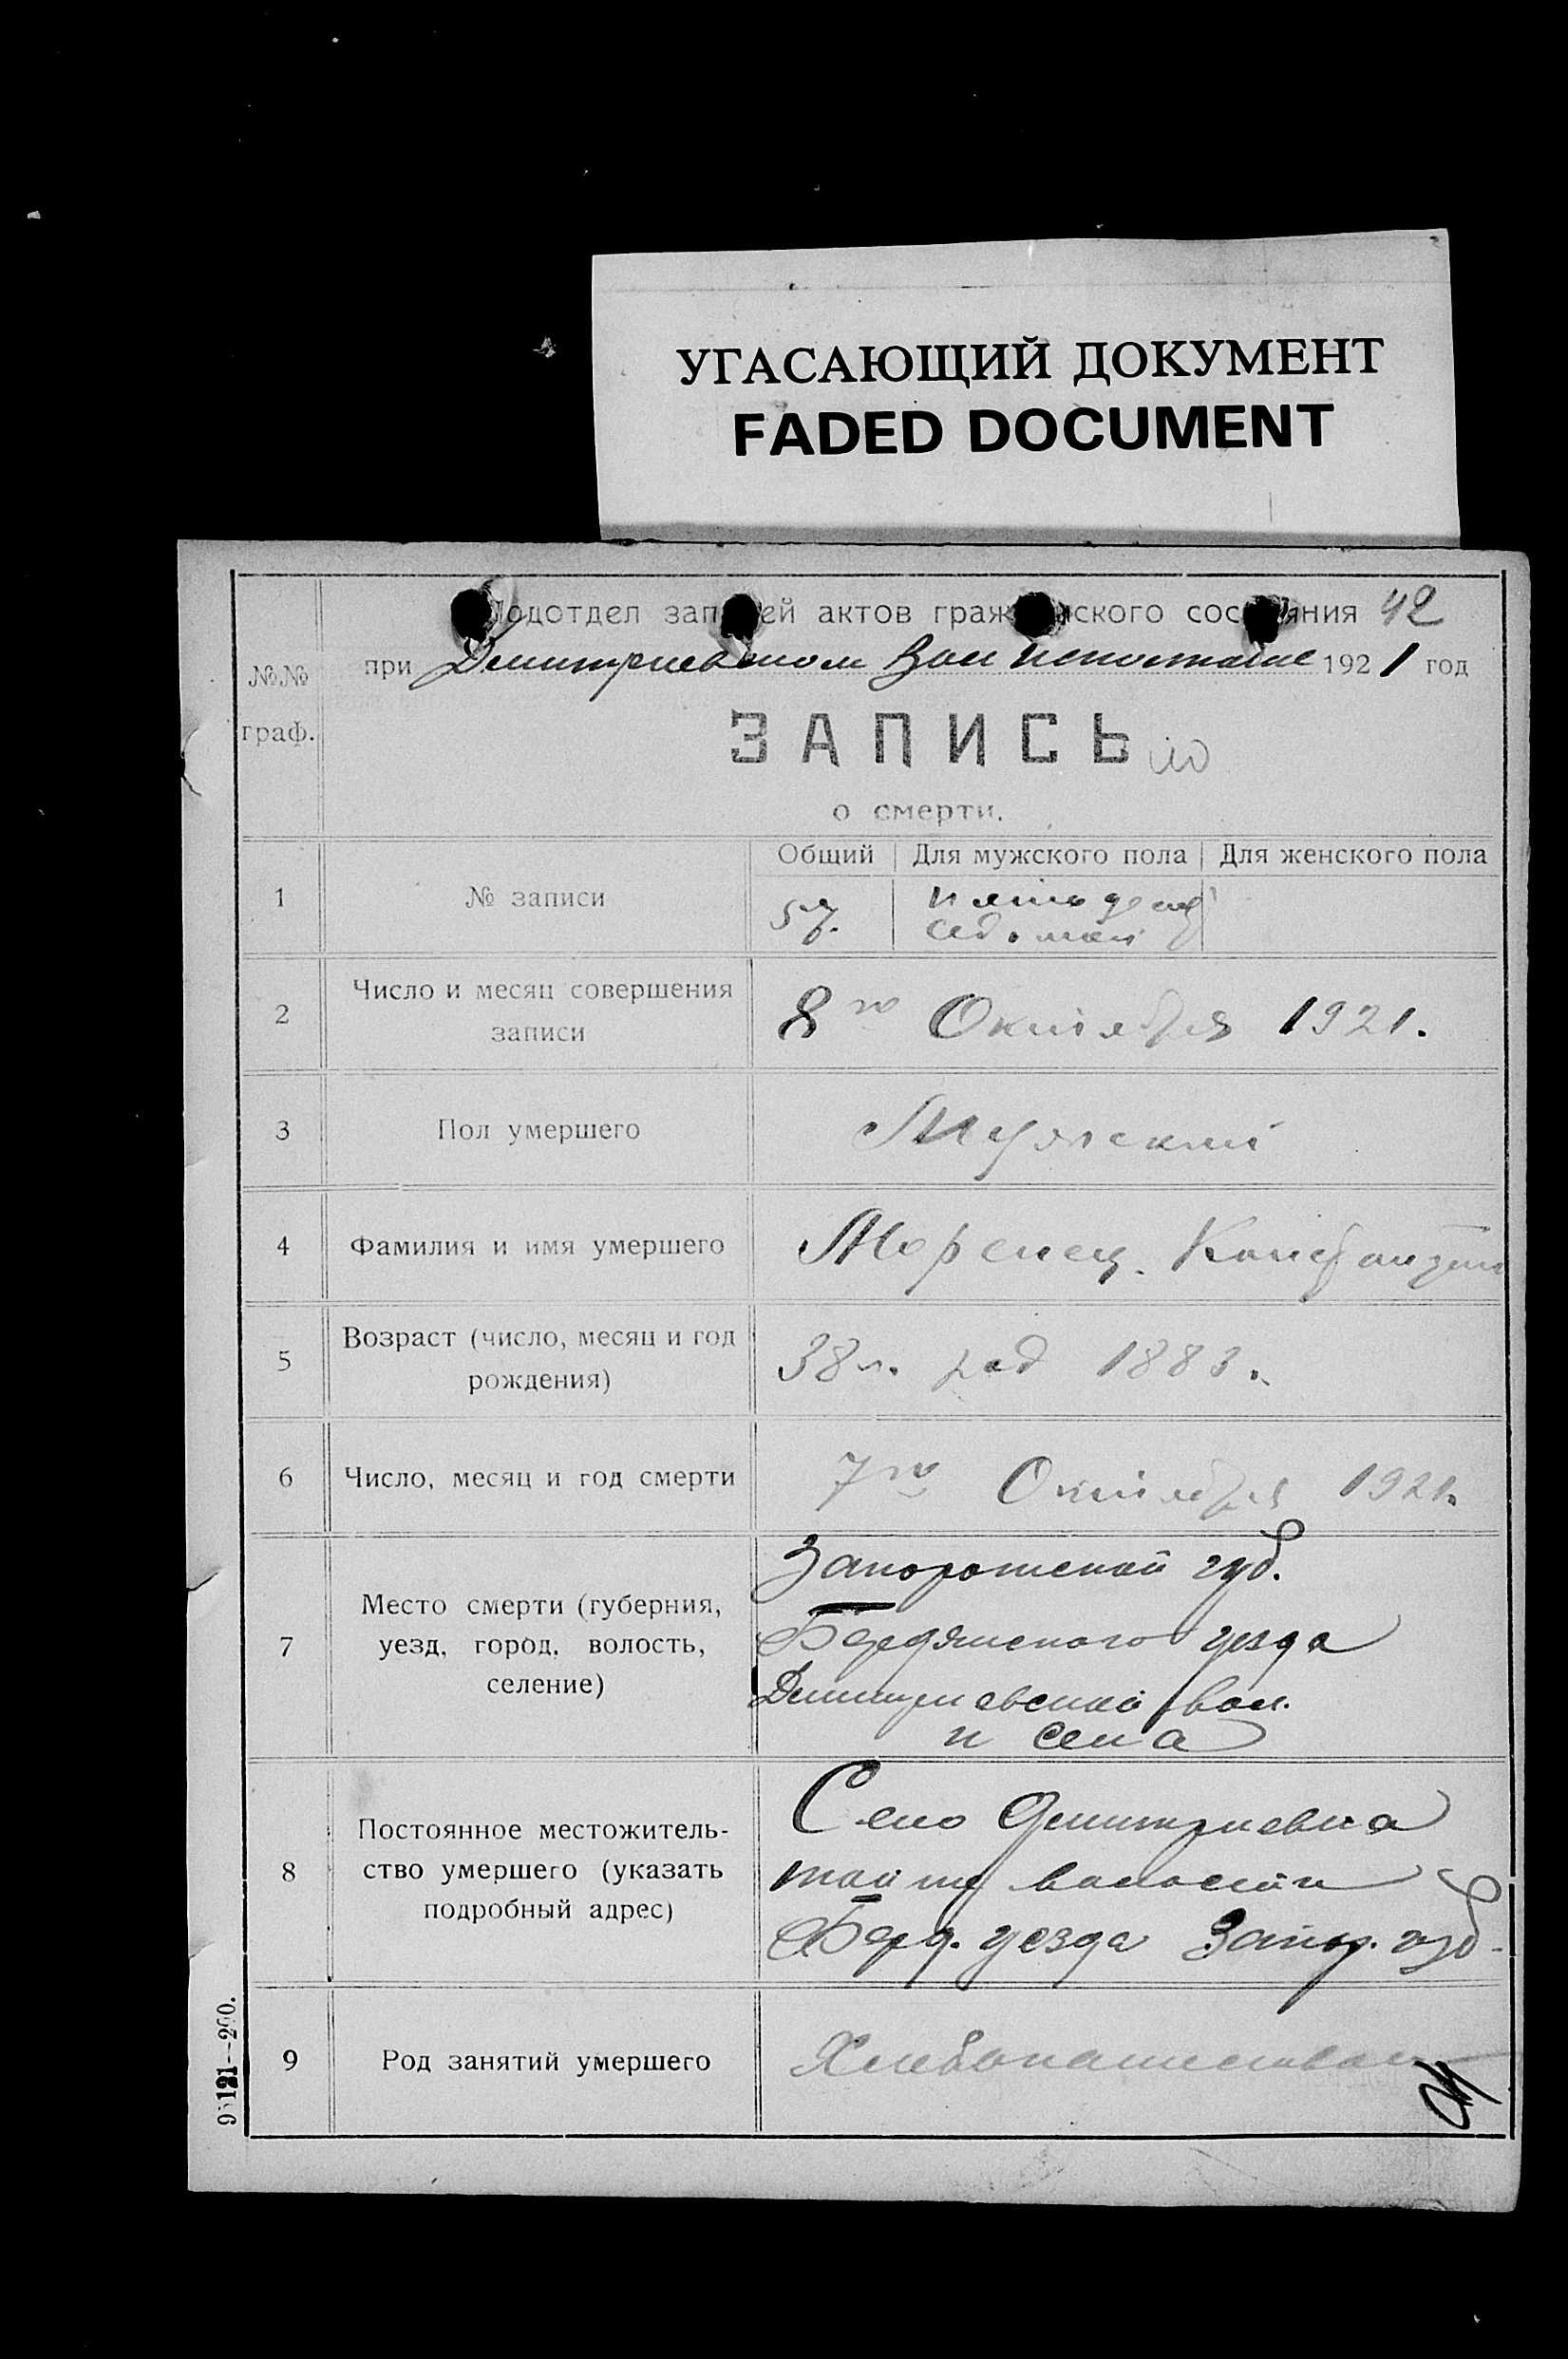 УГАСАЮЩИЙ ДОКУМЕНТ
FADED DOCUMENT
Подотдел записей актов гражданского состояния 42
при Дмитриевском Вол исполкоме 1921 год
№№ граф.
ЗАПИСЬ
о смерти.
Общий Для мужского пола Для женского пола
1 № записи 57. пятьдесят
седьмой
2 Число и месяц совершения
записи 8го Октября 1921.
3 Пол умершего Мужской
4 Фамилия и имя умершего Моренец. Константин
5 Возраст (число, месяц и год
рождения) 38 л. род 1883.
6 Число, месяц и год смерти 7го Октября 1921.
7 Место смерти (губерния,
уезд, город, волость,
селение) Запорожской губ.
Бердянского уезда
Дмитриевской вол.
и села
8 Постоянное местожитель-
ство умершего (указать
подробный адрес) Село Дмитриевка
той же волости
Берд. уезда Запор. губ.
9 Род занятий умершего Хлебопашеством